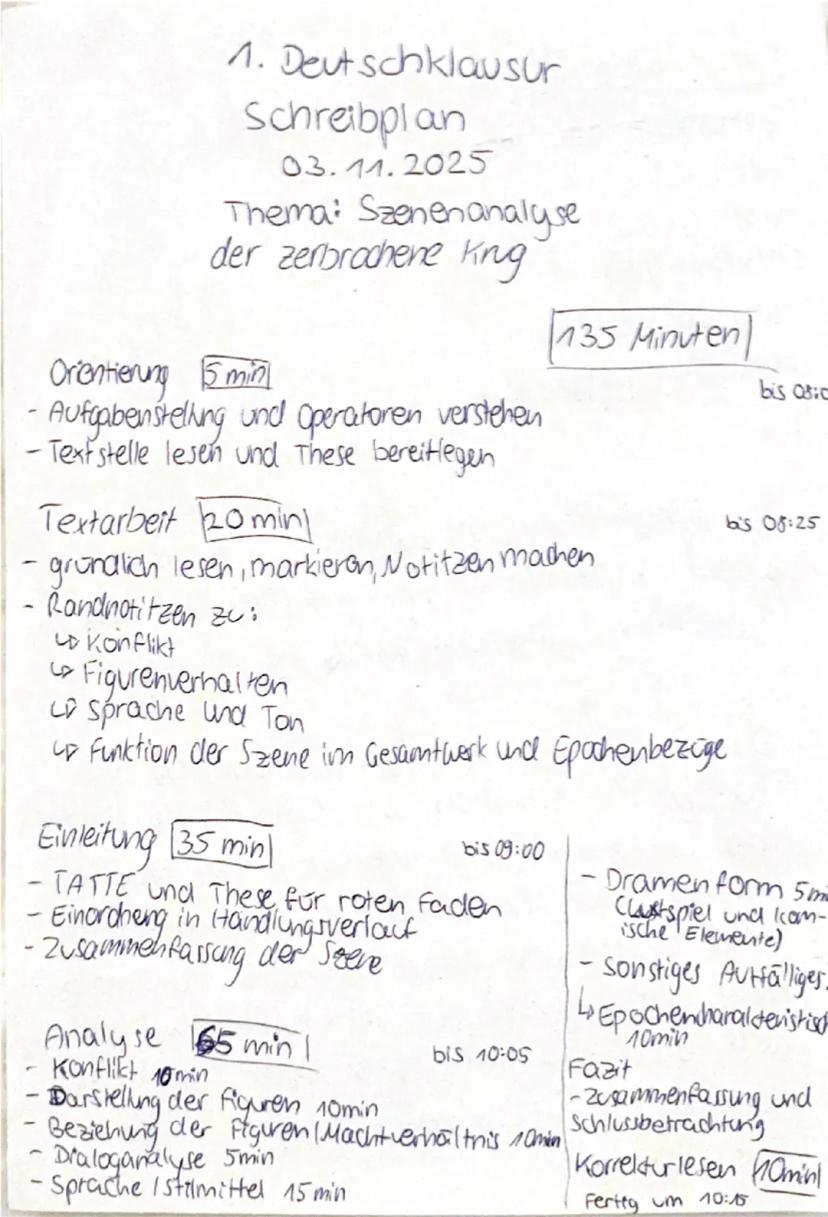 1. Deutschklausur
Schreibplan
03.11.2025
Thema: Szenenanalyse
der zerbrochene Krug
135 Minuten
Orientierung 5 min
bis 08:0
- Aufgabenstellung und Operatoren verstehen
- Textstelle lesen und These bereitlegen
Textarbeit 20 min
bis 08:25
- gründlich lesen, markieren, Notitzen machen
- Randnotitzen zu:
↳ Konflikt
↳ Figurenverhalten
↳ Sprache und Ton
↳ Funktion der Szene im Gesamtwerk und Epochenbezüge
Einleitung 35 min
bis 09:00
- TATTE und These für roten Faden
- Einordnung in Handlungsverlauf
- Zusammenfassung der Szene
Analyse 65 min
bis 10:05
- Konflikt 10min
- Darstellung der Figuren 10min
- Beziehung der Figuren/Machtverhältnis 10min
- Dialoganalyse 5min
- Sprache/Stilmittel 15 min
- Dramenform 5mi
(Lustspiel und kom-
ische Elemente)
- sonstiges Auffälliges
↳ Epochencharakteristisch
10min
Fazit
- Zusammenfassung und
Schlussbetrachtung
Korrekturlesen 10min
Fertig um 10:15